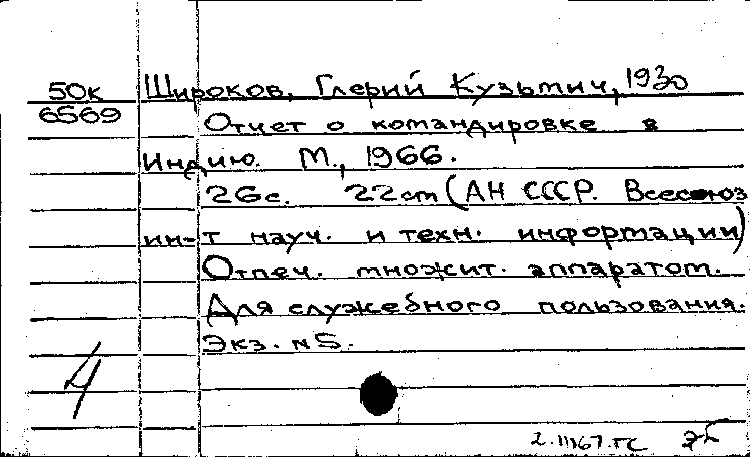 50к Широков, Глерий Кузьмич, 1930
6569 Отчет о командировке в
Индию. М., 1966.
26с. 22cm (АН СССР. Всесоюз
ин-т науч. и техн. информации)
Отпеч. множит. аппаратом.
Для служебного пользования.
Экз. N5.
4